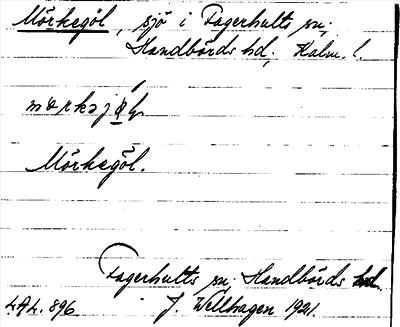 Mörkegöl, sjö i Fagerhults sn;
Handbörds hd, Kalm. l.
Mörkegöl.
Fagerhults sn. Handbörds hd.
LAL. 896 J. Wellhagen 1921.